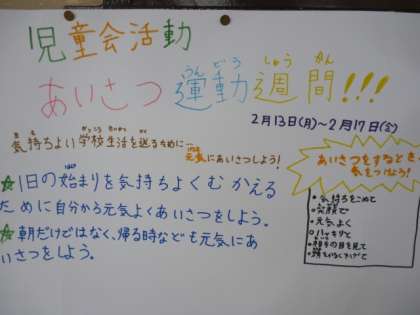 児童会活動
あいさつ運動週間!!!
2月13日(月)~2月17日(金)
気持ちよい学校生活を送るために…
元気にあいさつしよう!
☆1日の始まりを気持ちよくむかえる
ために自分から元気よくあいさつをしよう。
☆朝だけではなく、帰る時なども元気にあ
いさつをしよう。
あいさつをするとき
気をつけよう!
・気持ちをこめて
・笑顔で
・元気よく
・ハッキリと
・相手の目を見て